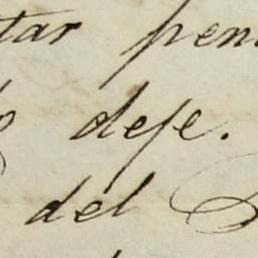 tar pen
defe.
del